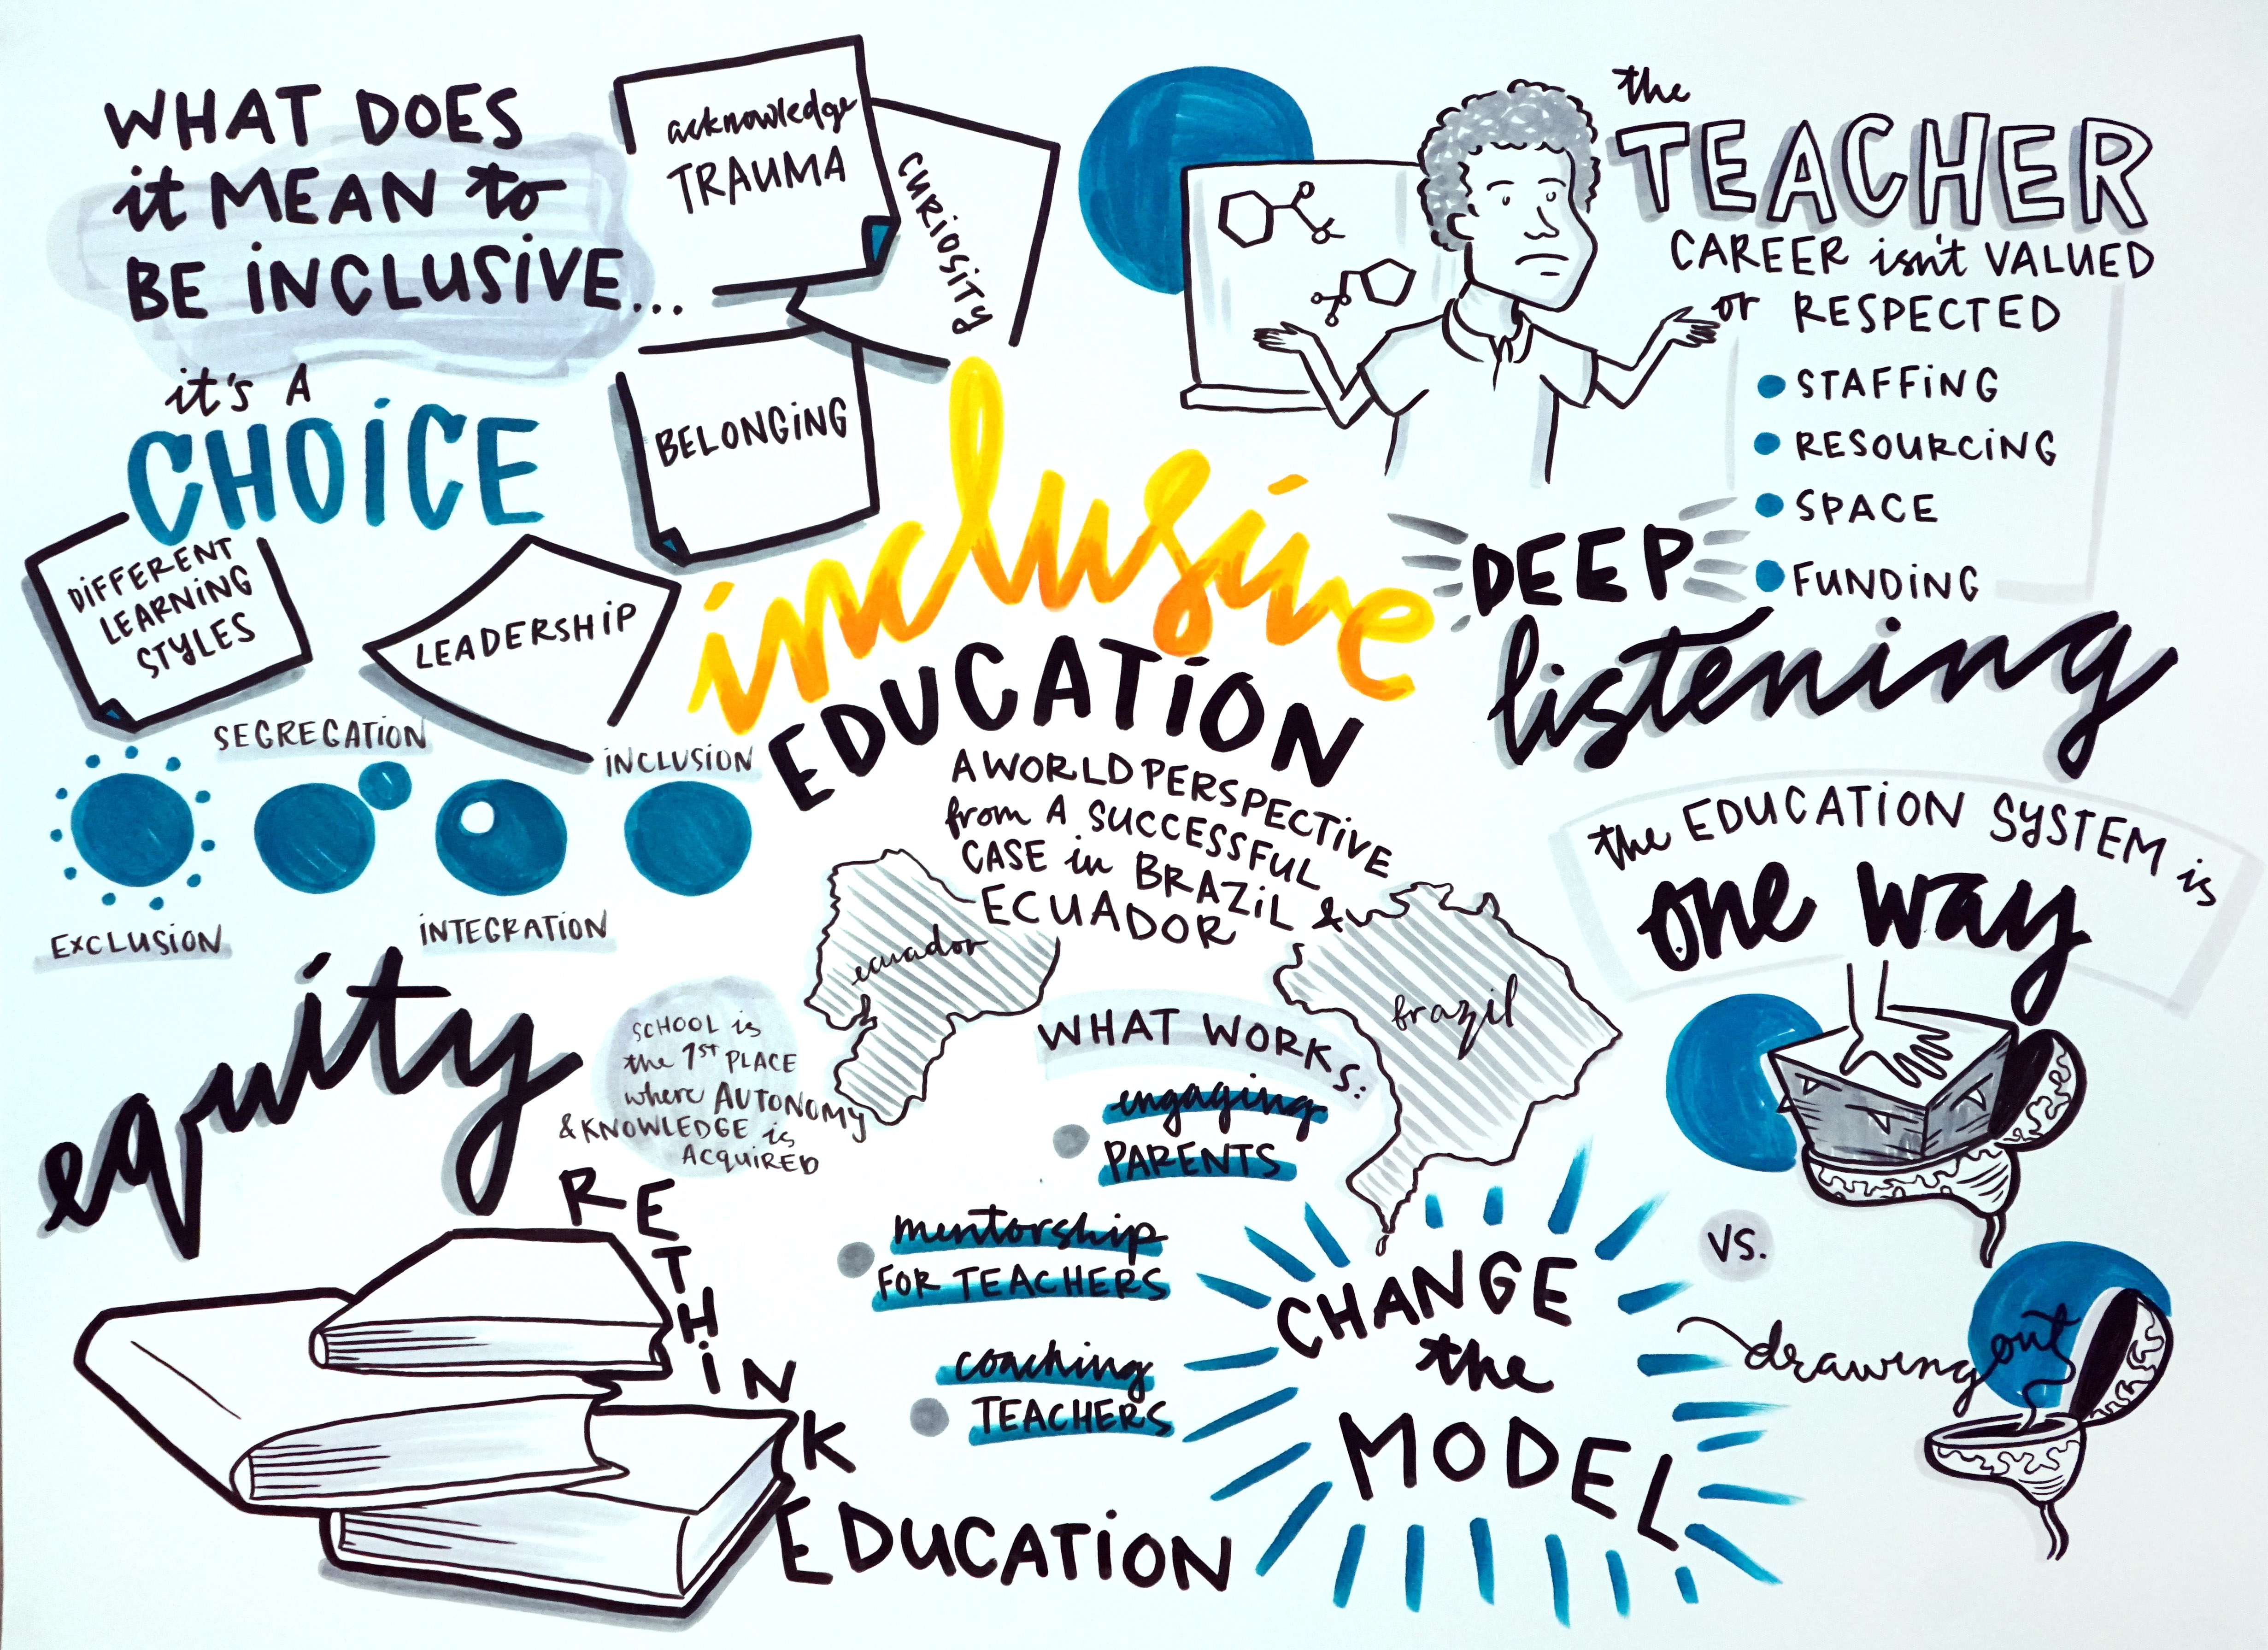 WHAT DOES
it MEAN to
BE iNCLUSiVE...
it's A
CHOiCE
acknowledge
TRAUMA
CURiOSiTY
BELONGiNG
DiFFERENT
LEARNiNG
STYLES
LEADERSHiP
SEGREGATiON
iNCLUSiON
EXCLUSiON
iNTEGRATiON
inclusive
EDUCATiON
A WORLD PERSPECTiVE
from A SUCCESSFUL
CASE in BRAZiL &
ECUADOR
ecuador
brazil
the
TEACHER
CAREER isn't VALUED
or RESPECTED
STAFFiNG
RESOURCiNG
SPACE
FUNDiNG
DEEP
listening
the EDUCATiON SYSTEM is
one way
VS.
drawing out
equity
SCHOOL is
the 1ST PLACE
where AUTONOMY
& KNOWLEDGE is
ACQUiRED
WHAT WORKS:
engaging
PARENTS
mentorship
FOR TEACHERS
coaching
TEACHERS
RETHiNK
EDUCATiON
CHANGE
the
MODEL